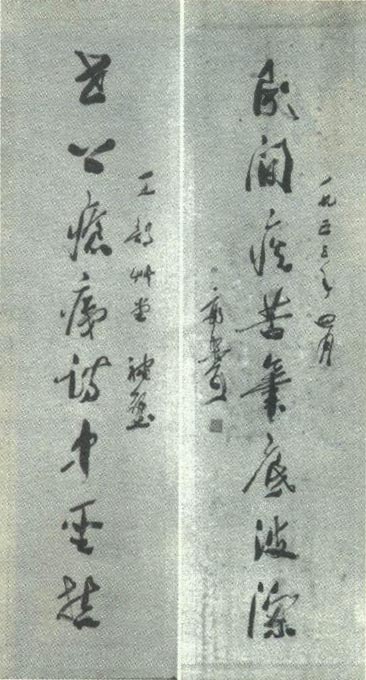 一九五三年四月
民間疾苦筆底波瀾
郭沫若
工部艸堂 補壁
世上瘡痍詩中聖哲